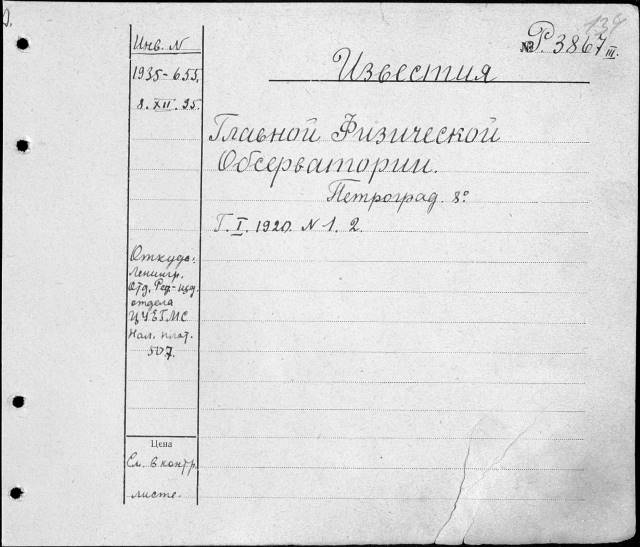 134
№ Р. 3867 III.
Известия
Главной Физической
Обсерватории.
Петроград. 8°
Г. I. 1920. N 1. 2.
Инв. N
1935-655.
8. XII. 35.
Откуда:
Ленингр.
Отд. Ред-изд.
отдела
ЦУЕГМС
Нал. плат.
507.
Цена
См. в контр.
листе.